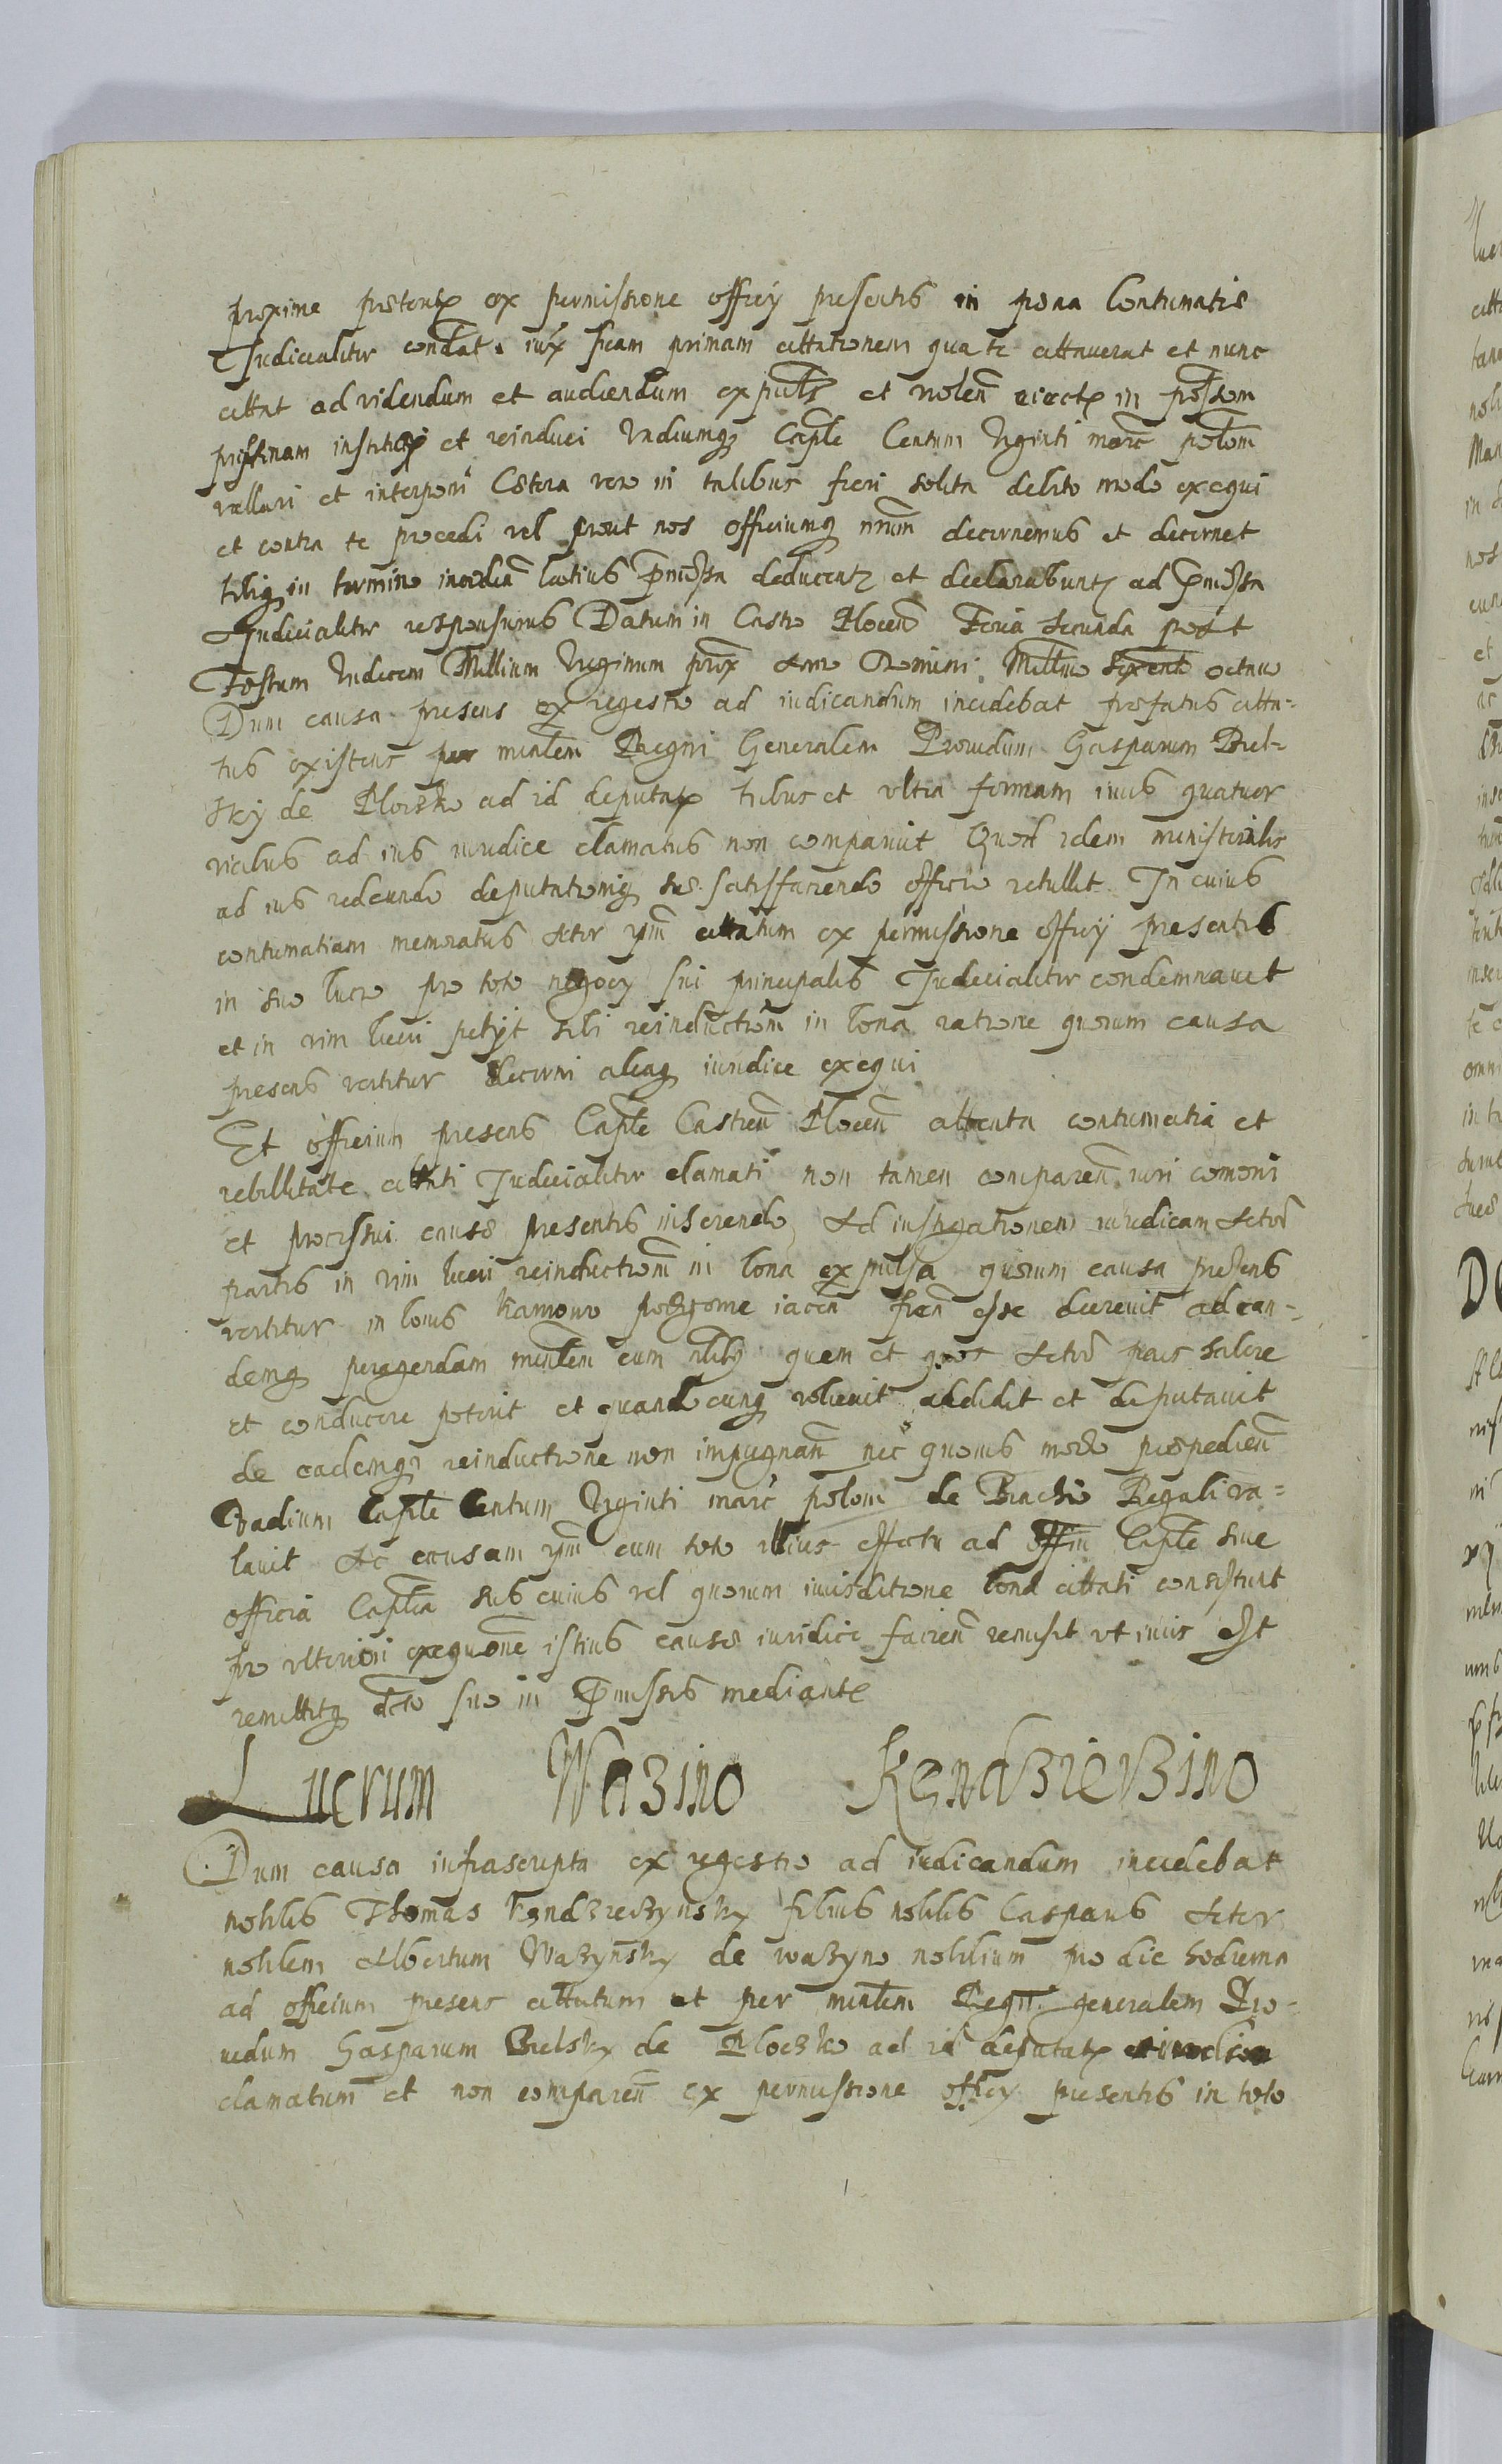 proxime præterit ex permissione officy presentis in pena Contumatiæ
Judicialiter condat iux suam primam cittationem qua te cittaverat et nunc
cittat ad videndum et audiendum ex et eiect in possom
pristinam et reinduci Vadiumq Caple Centum Viginti marc polom
vallari et interponi Cætera vero in talibus fieri solita debito modo exequi
et contra te procedi vel prout nos officiumq nrum decernemus et decernet
tibiq in termino latius præmissa deducentr et declarabuntr ad præmissa
Judicialiter responsurus Datum in Castro Plocen Feria secunda post
Festum Undecem Millium Virginum prox Anno Domini Millmo Sexcent octavo
Dum causa presens ex regestro ad iudicandum incidebat præfatus citta-
tus existens per minlem Regni Generalem Providum Gasparum Biel-
sky de Plocsko ad id deputat tribus et ultra formam iuris quatuor
vicibus ad ius iuridice clamatus non comparuit Quod idem ministerialis
ad ius redeundo deputationiq suæ satisfaciendo officio retullit In cuius
contumatiam memoratus Actor ipm cittatum ex permissione officy presentis
in suo lucro pro toto negocy sui principalis Judicialiter condemnavit
et in vim lucri petyt sibi reinductionem in bona ratione quorum causa
presens vertitur decerni aliaq iuridice exequi
Et officium presens Capte Castren Plocen attenta contumatia et
rebellitate cittati Judicialiter clamati non tamen comparen iuri comoni
et processui causæ presentis inserendo Ad instigationem iuridicam Actor
partis in vim lucri reinductionem in bona expulsa quorum causa presens
vertitur in bonis iacen fien esse decrevit ad ean-
demq peragendam minlem cum nblby quem et quos Actor pars habere
et conducere poterit et quandocunq voluerit addidit et deputavit
de eademq reinductione non impugnan nec quovis modo præpedien
Vadium Caple Centum Viginti marc polom de Brachio Regali va-
lavit Ac causam ipm cum toto illius effectu ad offm Caple sive
officia Captia sub cuius vel quorum iurisditione bona cittati consistunt
pro ulteriori exequone istius causæ iuridice facien remisit ut iuris est
remittitq dcto suo in Præmissis mediante
Lucrum Wazino Kendzierzino
Dum causa infrascripta ex regestro ad iudicandum incidebat
nobilis Thomas Kendzierzynsky filius nobilis Casparis Actor
nobilem Albertum Wazynsky de wazyno nobilium pro die hodierna
ad officium presens cittatum et per minlem Regn generalem Pro-
vidum Gasparum Bielsky de Plocsko ad id deputat
clamatum et non comparen ex permissione officy presentis in toto